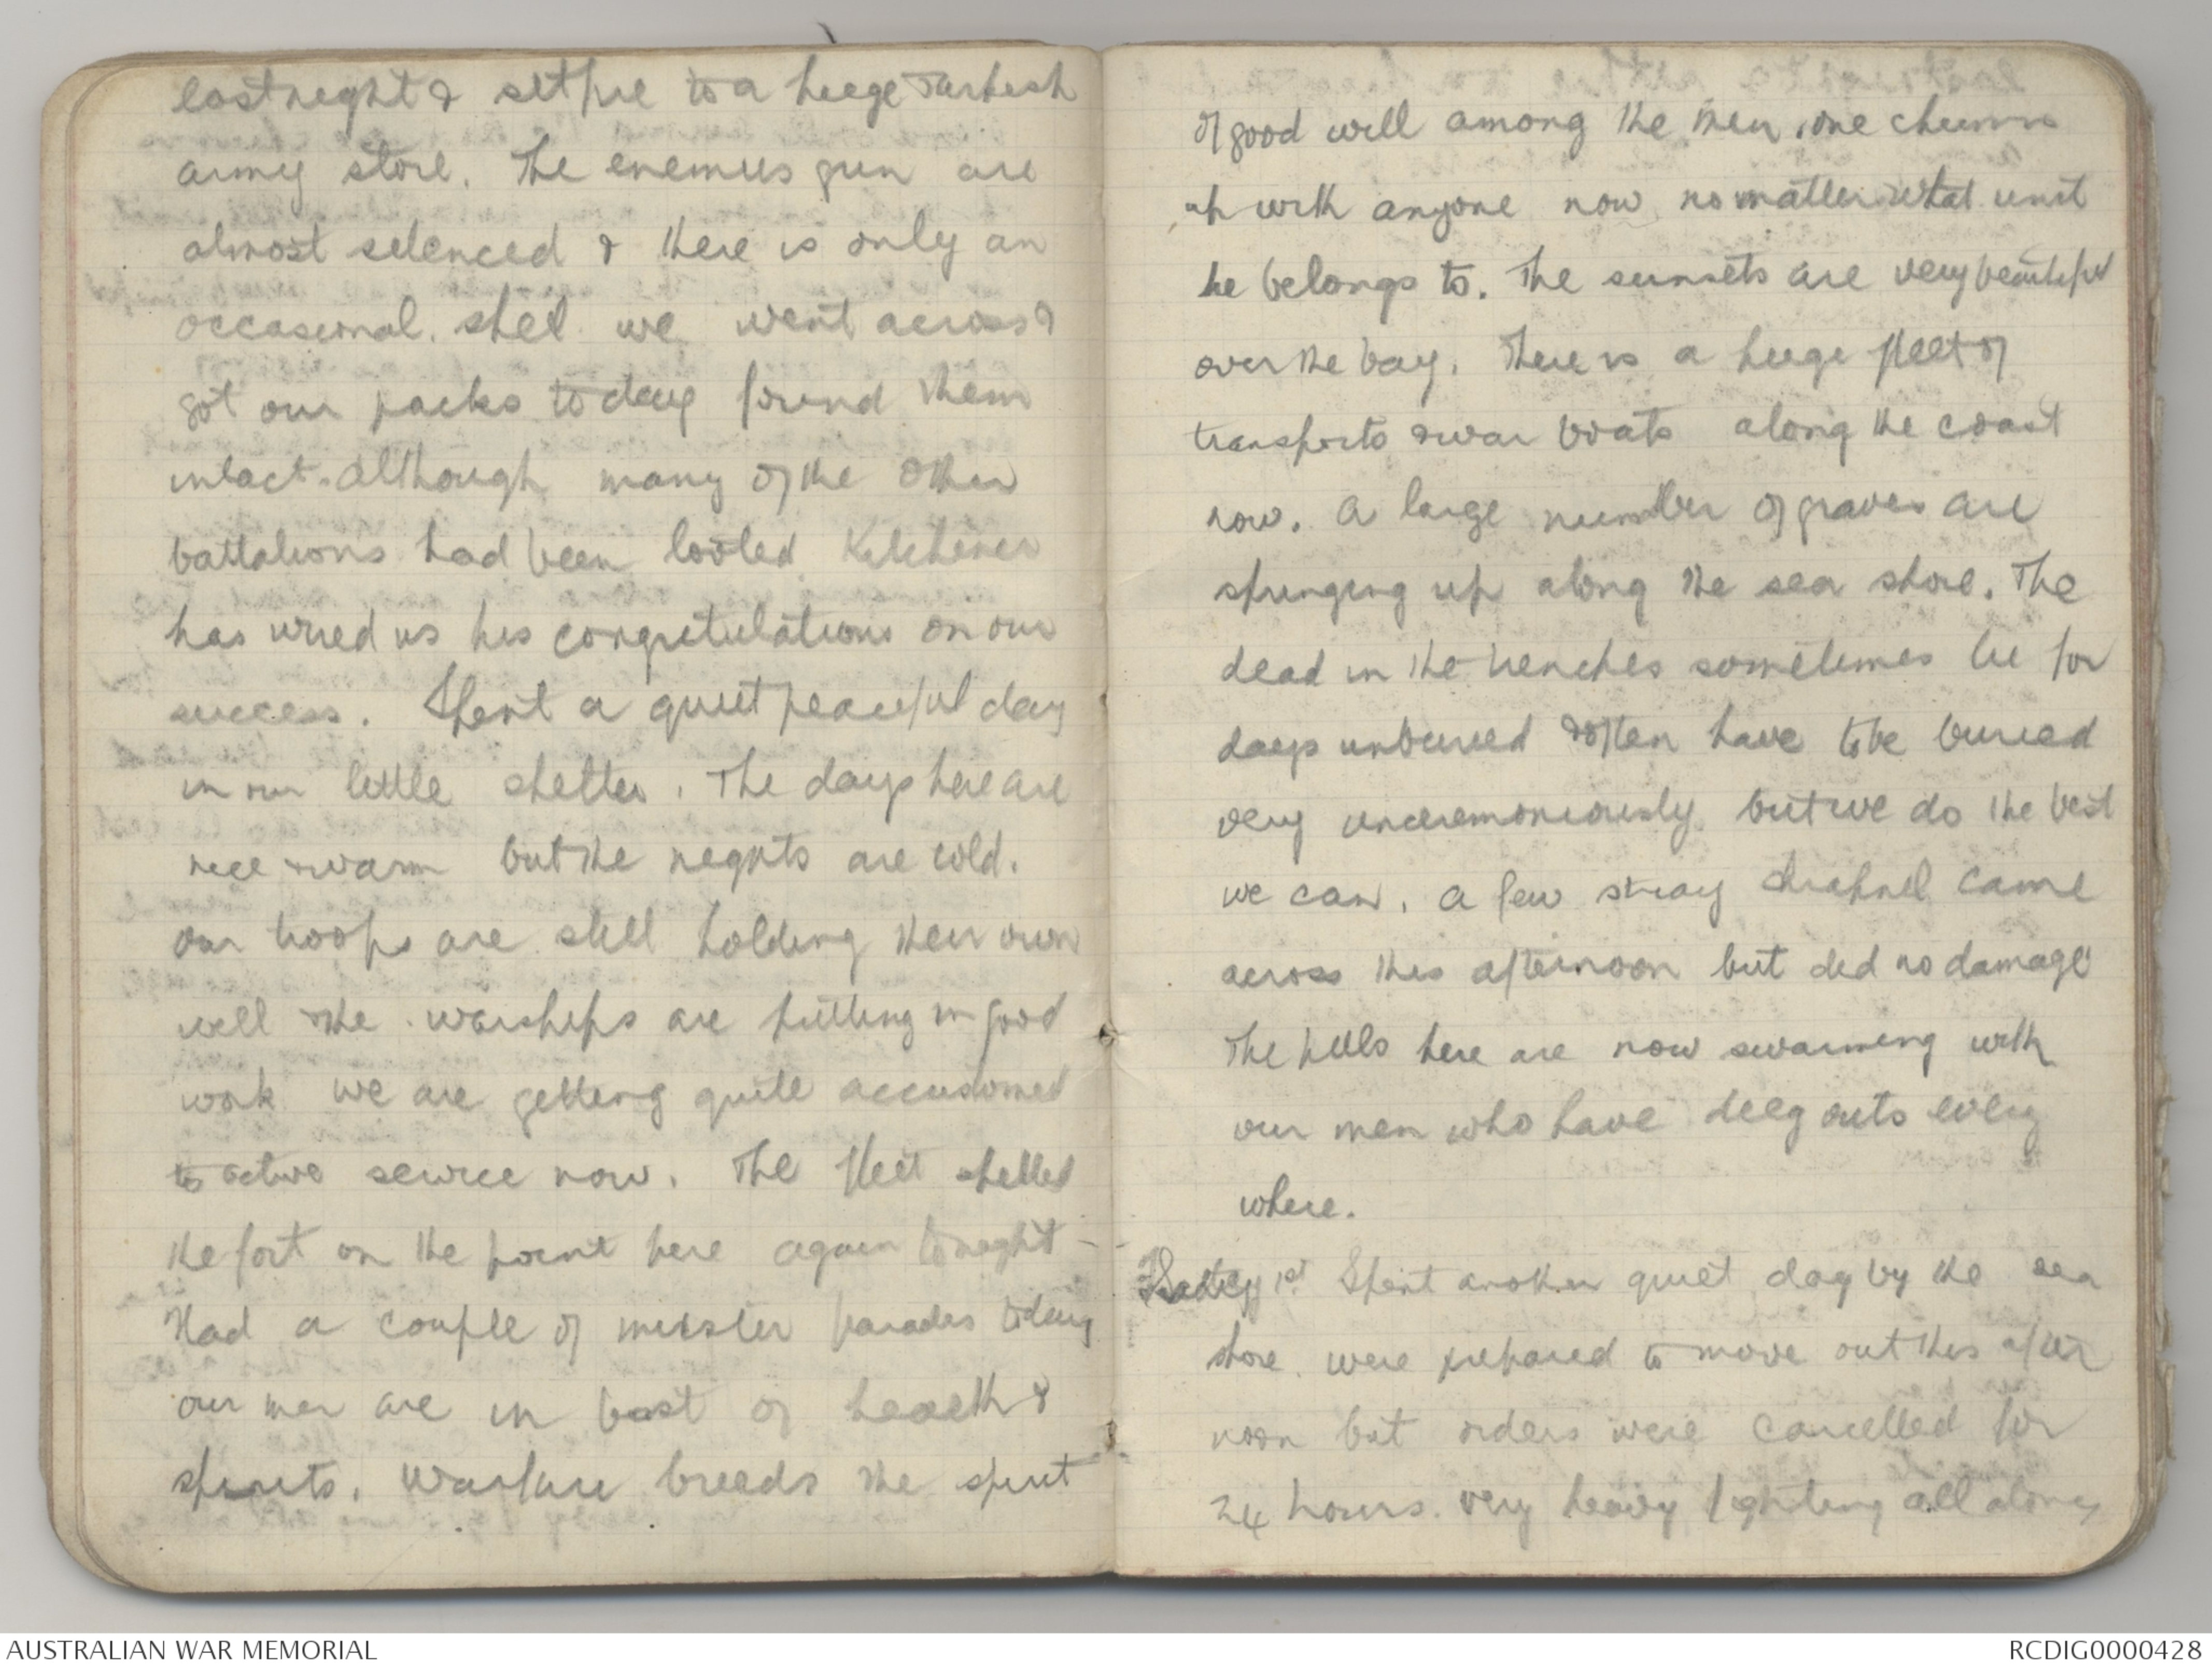 last night & set fire to a huge Turkish
army store. The enemies gun are
almost silenced & there is only an
occasional shell. we went across &
got our packs today found them
intact. although many of the other
battalions had been looted. Kitchener
has wired us his congratulations on our
success. Spent a quiet peaceful day
in our little shelter. The days here are
nice & warm but the nights are cold.
Our troops are still holding their own
well & the warships are putting in good
work we are getting quite accustomed
to active service now. The fleet shelled
the fort on the point here again tonight -
Had a couple of muster parades today
our men are in best of health &
spirits. Warfare breeds the spirit
of good will among the men, one chums
up with anyone now no matter what unit
he belongs to. The sunsets are very beautiful
over the bay. There is a huge fleet of
transports & war boats along the coast
now. A large number of graves are
springing up along the sea shore. The
dead in the trenches sometimes lie for
days unburied & often have to be buried
very unceremoniously but we do the best
we can. A few stray shrapnel came
across this afternoon but did no damage
The hills here are now swarming with
our men who have deug outs every
where.
1st Spent another quiet day by the sea
shore. were prepared to move out this after
noon but orders were cancelled for
24 hours. very heavy fighting all along
AUSTRALIAN WAR MEMORIAL
RCDIG0000428